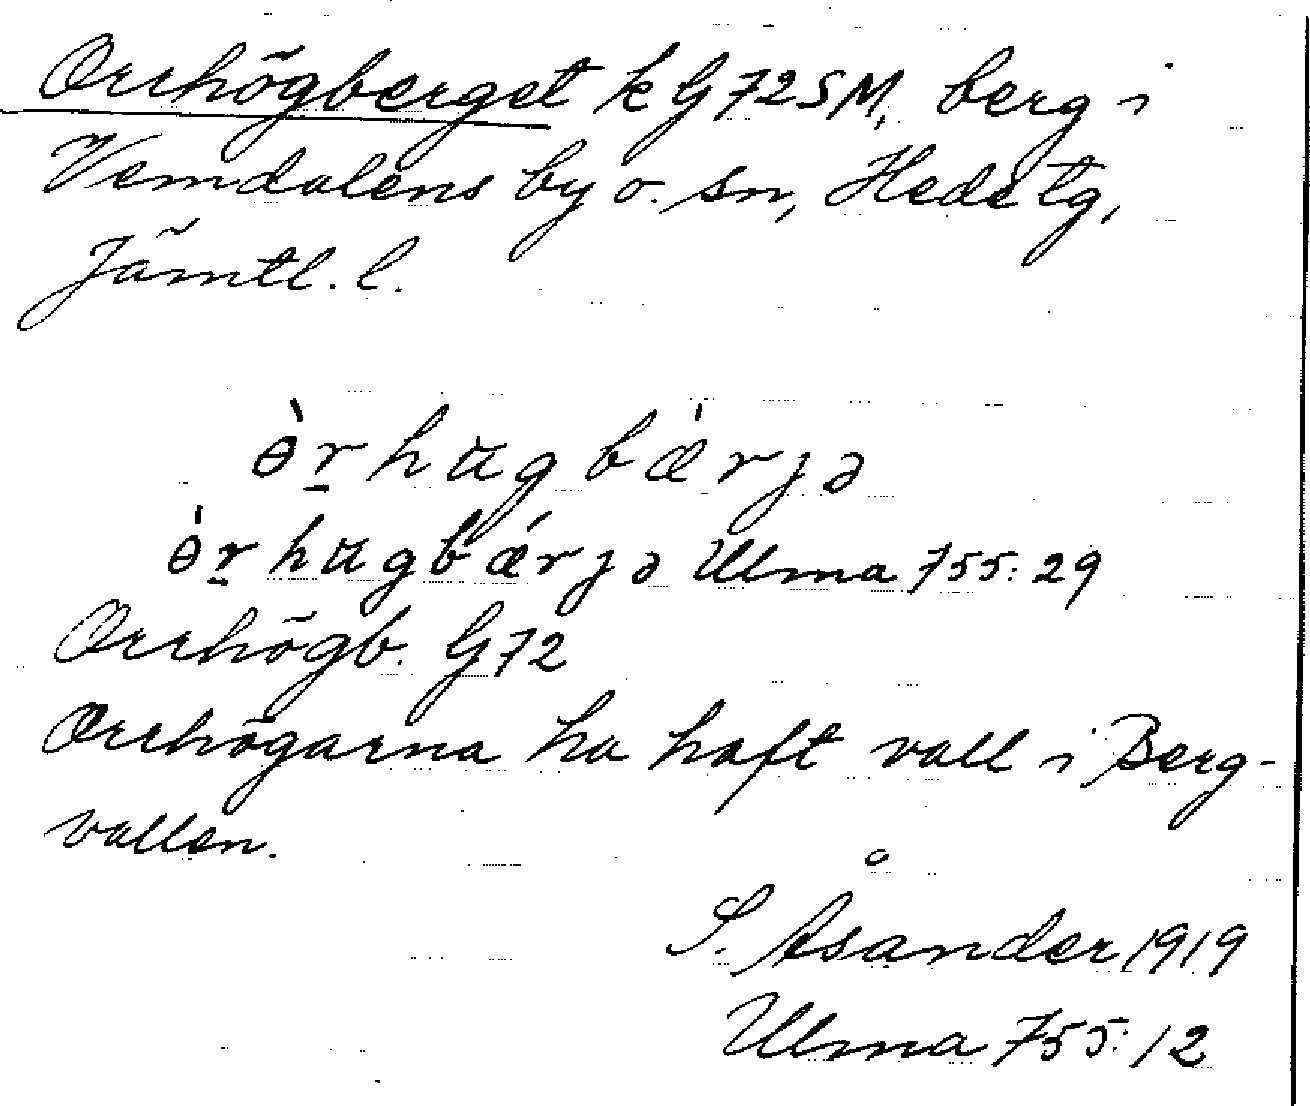 Orrhögberget k G72SM, berg i
Vemdalens by o. sn, Hede tg,
Jämtl. l.
ɵ̀r̲hɑgbǽrjə
ɵ̀r̲hɑgbǽrjə Ulma 755:29
Orrhögb. G72
Orrhögarna ha haft vall i Berg-
vallen.
S. Åsander 1919
Ulma 755:12